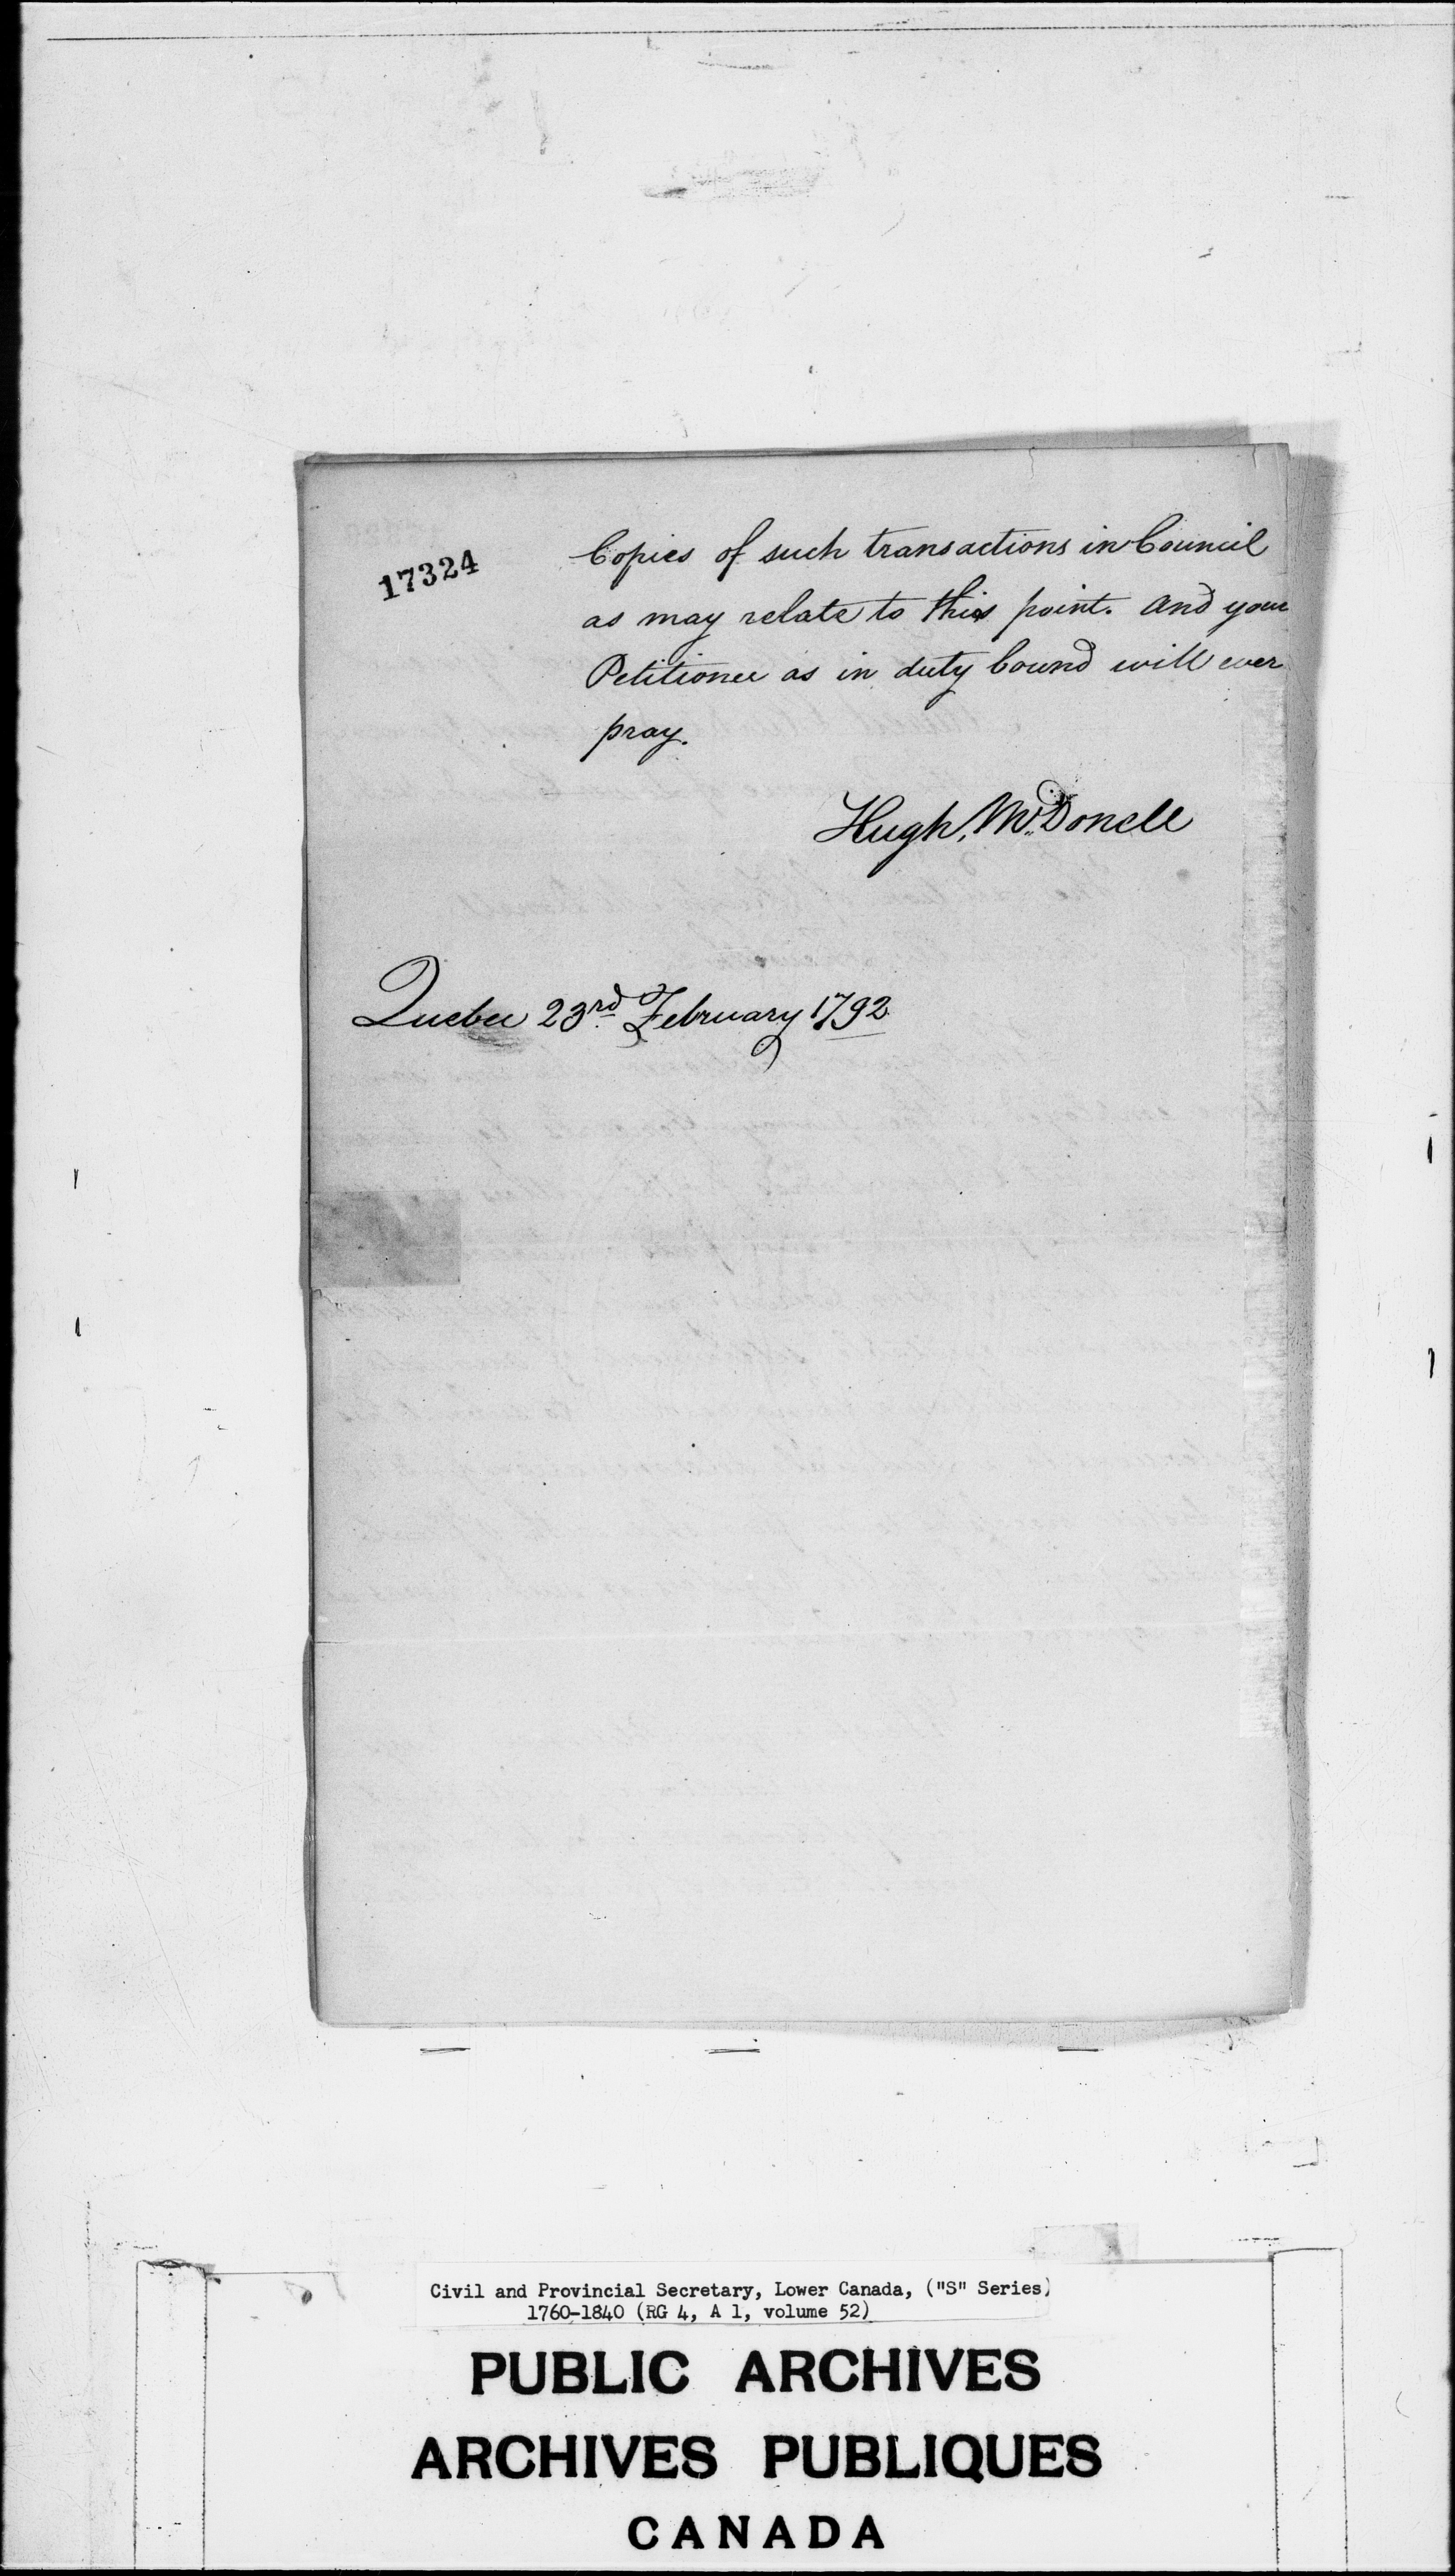 17324
Copies of such transactions in Council
as may relate to this point. And your
Petitioner as in duty bound will ever
pray.
Hugh McDonell
Quebec 23rd February 1792
Civil and Provincial Secretary, Lower Canada, ("S" Series)
1760-1840 (RG 4, A 1, volume 52)
PUBLIC ARCHIVES
ARCHIVES PUBLIQUES
CANADA